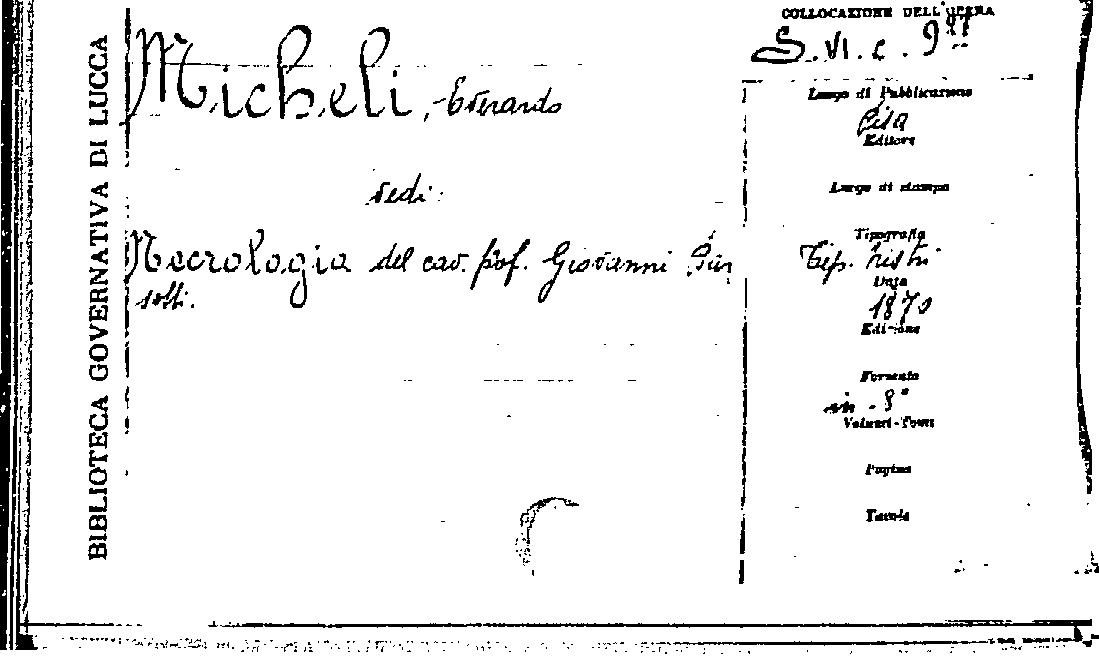 BIBLIOTECA GOVERNATIVA DI LUCCA
Micheli, Everardo
vedi:
Necrologia del cav. prof. Giovanni
COLLOCAZIONE DELL'OPERA
S. VI. c. 9
Luogo di Pubblicazione
Pisa
Editore
Luogo di stampa
Tipografia
Tip. Nistri
Data
1870
Edizione
Formato
in-8°
Volumi-Tomi
Pagine
Tavole